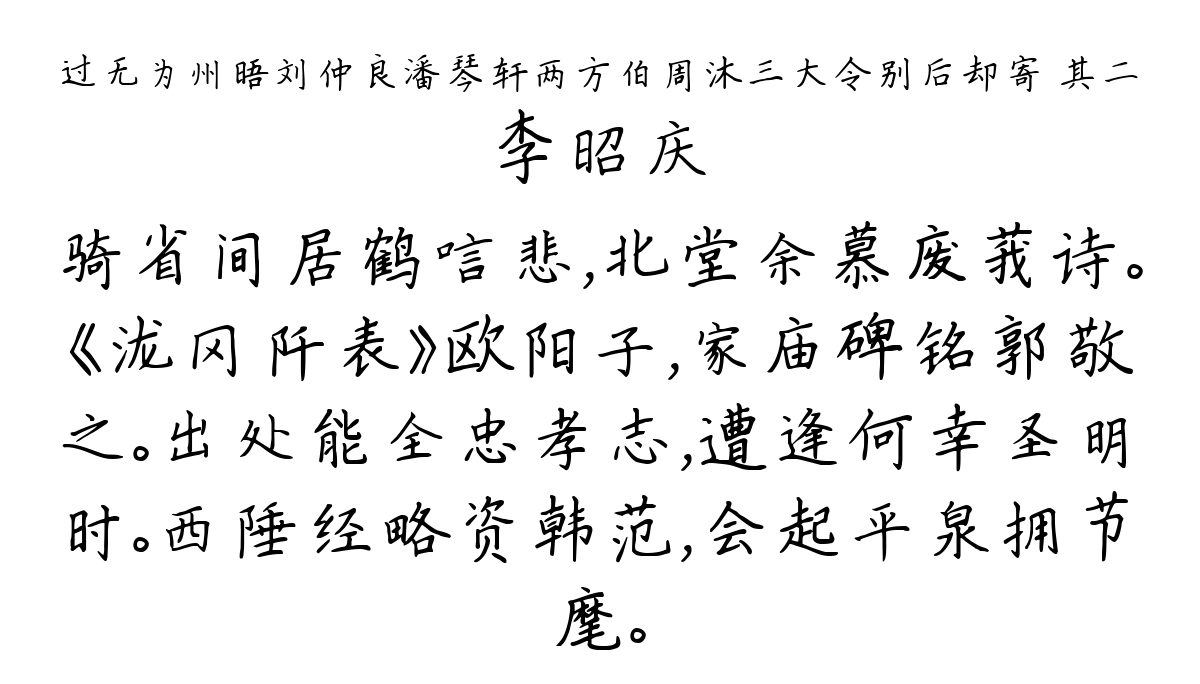 过无为州晤刘仲良潘琴轩两方伯周沐三大令别后却寄 其二
李昭庆
骑省间居鹤唁悲,北堂余慕废莪诗。
《泷冈阡表》欧阳子,家庙碑铭郭敬
之。出处能全忠孝志,遭逢何幸圣明
时。西陲经略资韩范,会起平泉拥节
麾。